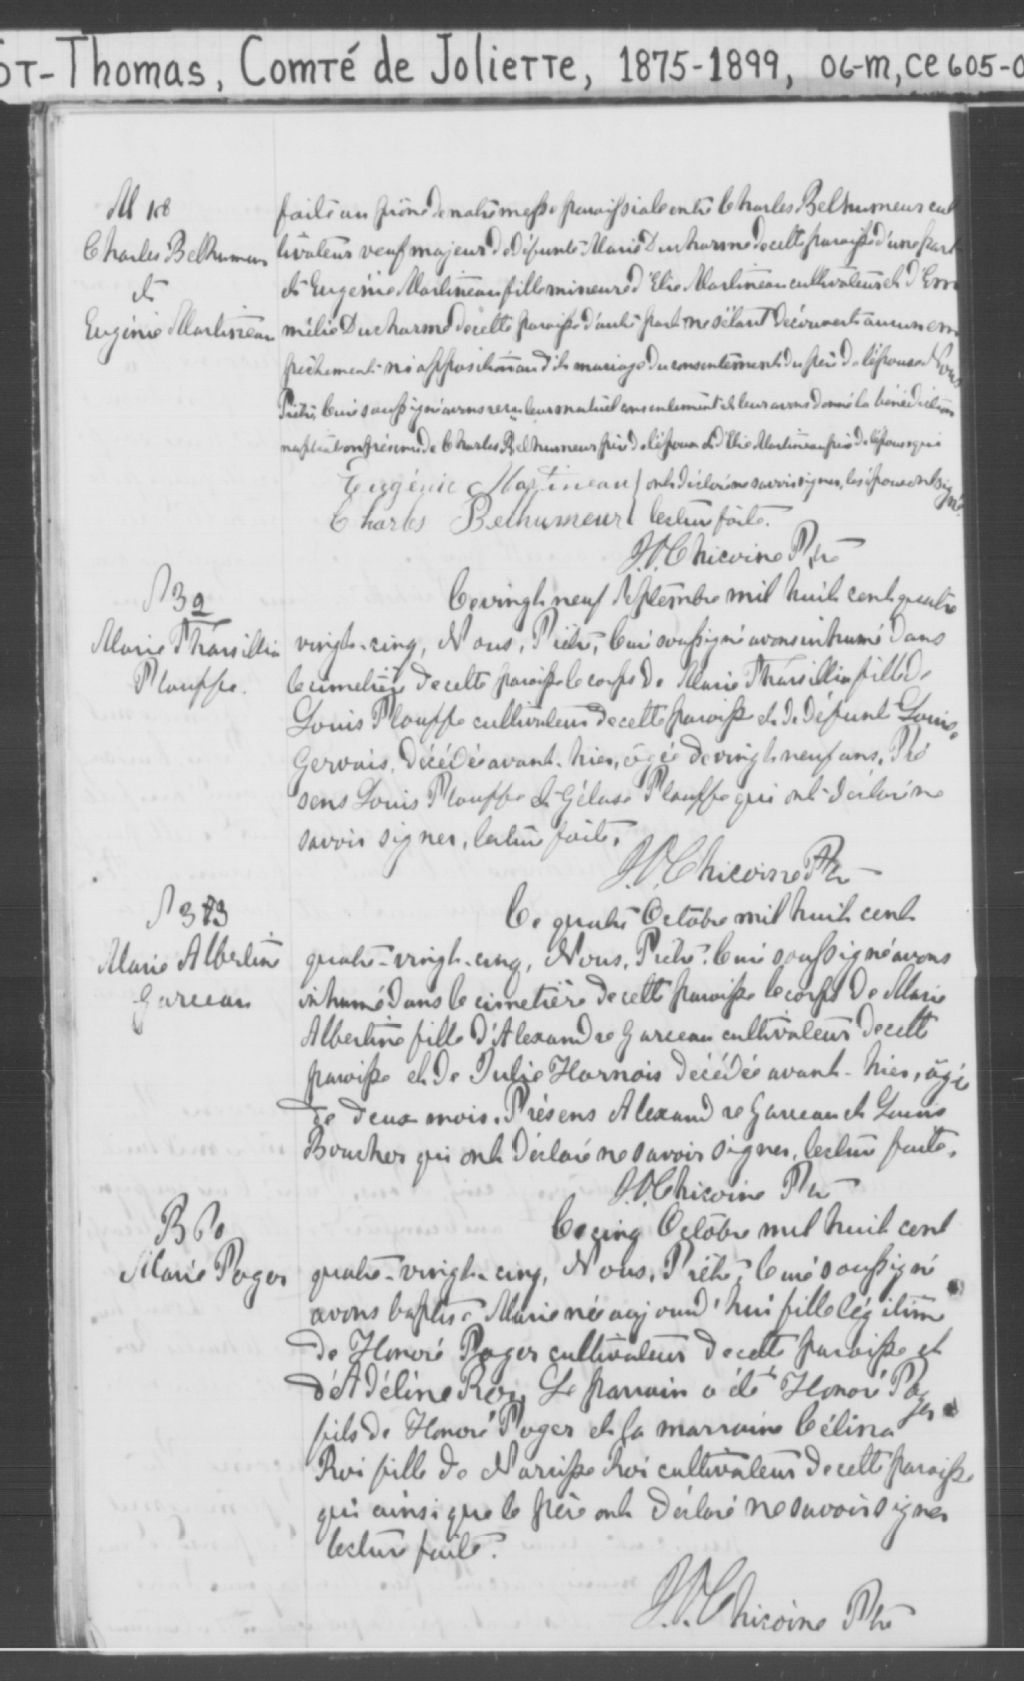 ST-Thomas, Comté de Joliette, 1875-1899, 06-M, CE605-
M 18
Charles Belhumeur
et
Eugénie Martineau
faite au prône de notre messe paroissiale entre Charles Belhumeur cul
tivateur veuf majeur de défunte Marie Ducharme de cette paroisse d'une part
et Eugénie Martineau fille mineure d'Elie Martineau cultivateur et d'Em
mélie Ducharme de cette paroisse d'autre part ne s'étant découvert aucun em
pêchement ni opposition au dit mariage du consentement du père de l'épouse Nous
Prêtre, Curé soussigné avons reçu leur mutuel consentement et leur avons donné la bénédiction
nuptiale en présence de Charles Belhumeur père de l'époux et d'Elie Martineau père de l'épouse qui
Eugénie Martineau ont déclaré ne savoir signer, les époux ont signé.
Charles Belhumeur lecture faite.
J.O. Chicoine Ptre
S 39
Marie Tharsillia
Plouffe.
Ce vingt neuf Septembre mil huit cent quatre
vingt-cinq, Nous, Prêtre, Curé soussigné avons inhumé dans
le cimetière de cette paroisse le corps de Marie Tharsillia fille de
Louis Plouffe cultivateur de cette paroisse et de défunt Louise
Gervais, décédée avant-hier, âgée de vingt neuf ans. Pré
sens Louis Plouffe et Gélase Plouffe qui ont déclaré ne
savoir signer, lecture faite.
J.O. Chicoine Ptre
S 3
Marie Albertine
Garceau
Ce quatre Octobre mil huit cent
quatre-vingt-cinq, Nous, Prêtre, Curé soussigné avons
inhumé dans le cimetière de cette paroisse le corps de Marie
Albertine fille d'Alexandre Garceau cultivateur de cette
paroisse et de Julie Harnois décédée avant-hier, âgée
de deux mois. Présens Alexandre Garceau et Louis
Boucher qui ont déclaré ne savoir signer, lecture faite.
J.O. Chicoine Ptre
B 60
Marie Pager
Ce cinq Octobre mil huit cent
quatre-vingt-cinq, Nous, Prêtre, Curé soussigné
avons baptisé Marie née aujourd'hui fille légitime
de Honoré Pager cultivateur de cette paroisse et
d'Adéline Roy. Le parrain a été Honoré Pager
fils de Honoré Pager et la marraine Célina
Roi fille de Narcisse Roi cultivateur de cette paroisse
qui ainsi que le père ont déclaré ne savoir signer
lecture faite.
J.O. Chicoine Ptre